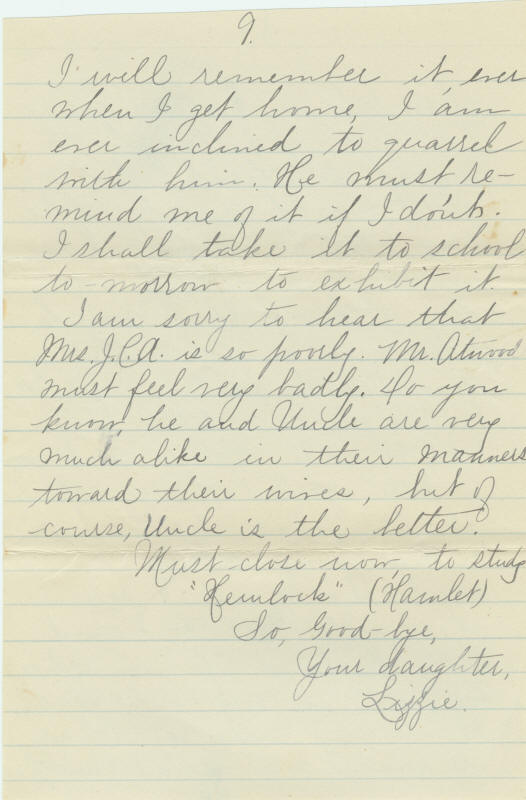 9.
I will remember it, ever
when I get home, I am
ever inclined to quarrel
with him. He must re-
mind me of it if I don't.
I shall take it to school
to-morrow to exhibit it.
I am sorry to hear that
Mrs. J.C.A. is so poorly. Mr. Atwood
must feel very badly. Do you
know, he and Uncle are very
much alike in their manners
toward their wives, but of
course, Uncle is the better.
Must close now, to study
"Hemlock" (Hamlet)
So, Good-bye,
Your daughter,
Lizzie.